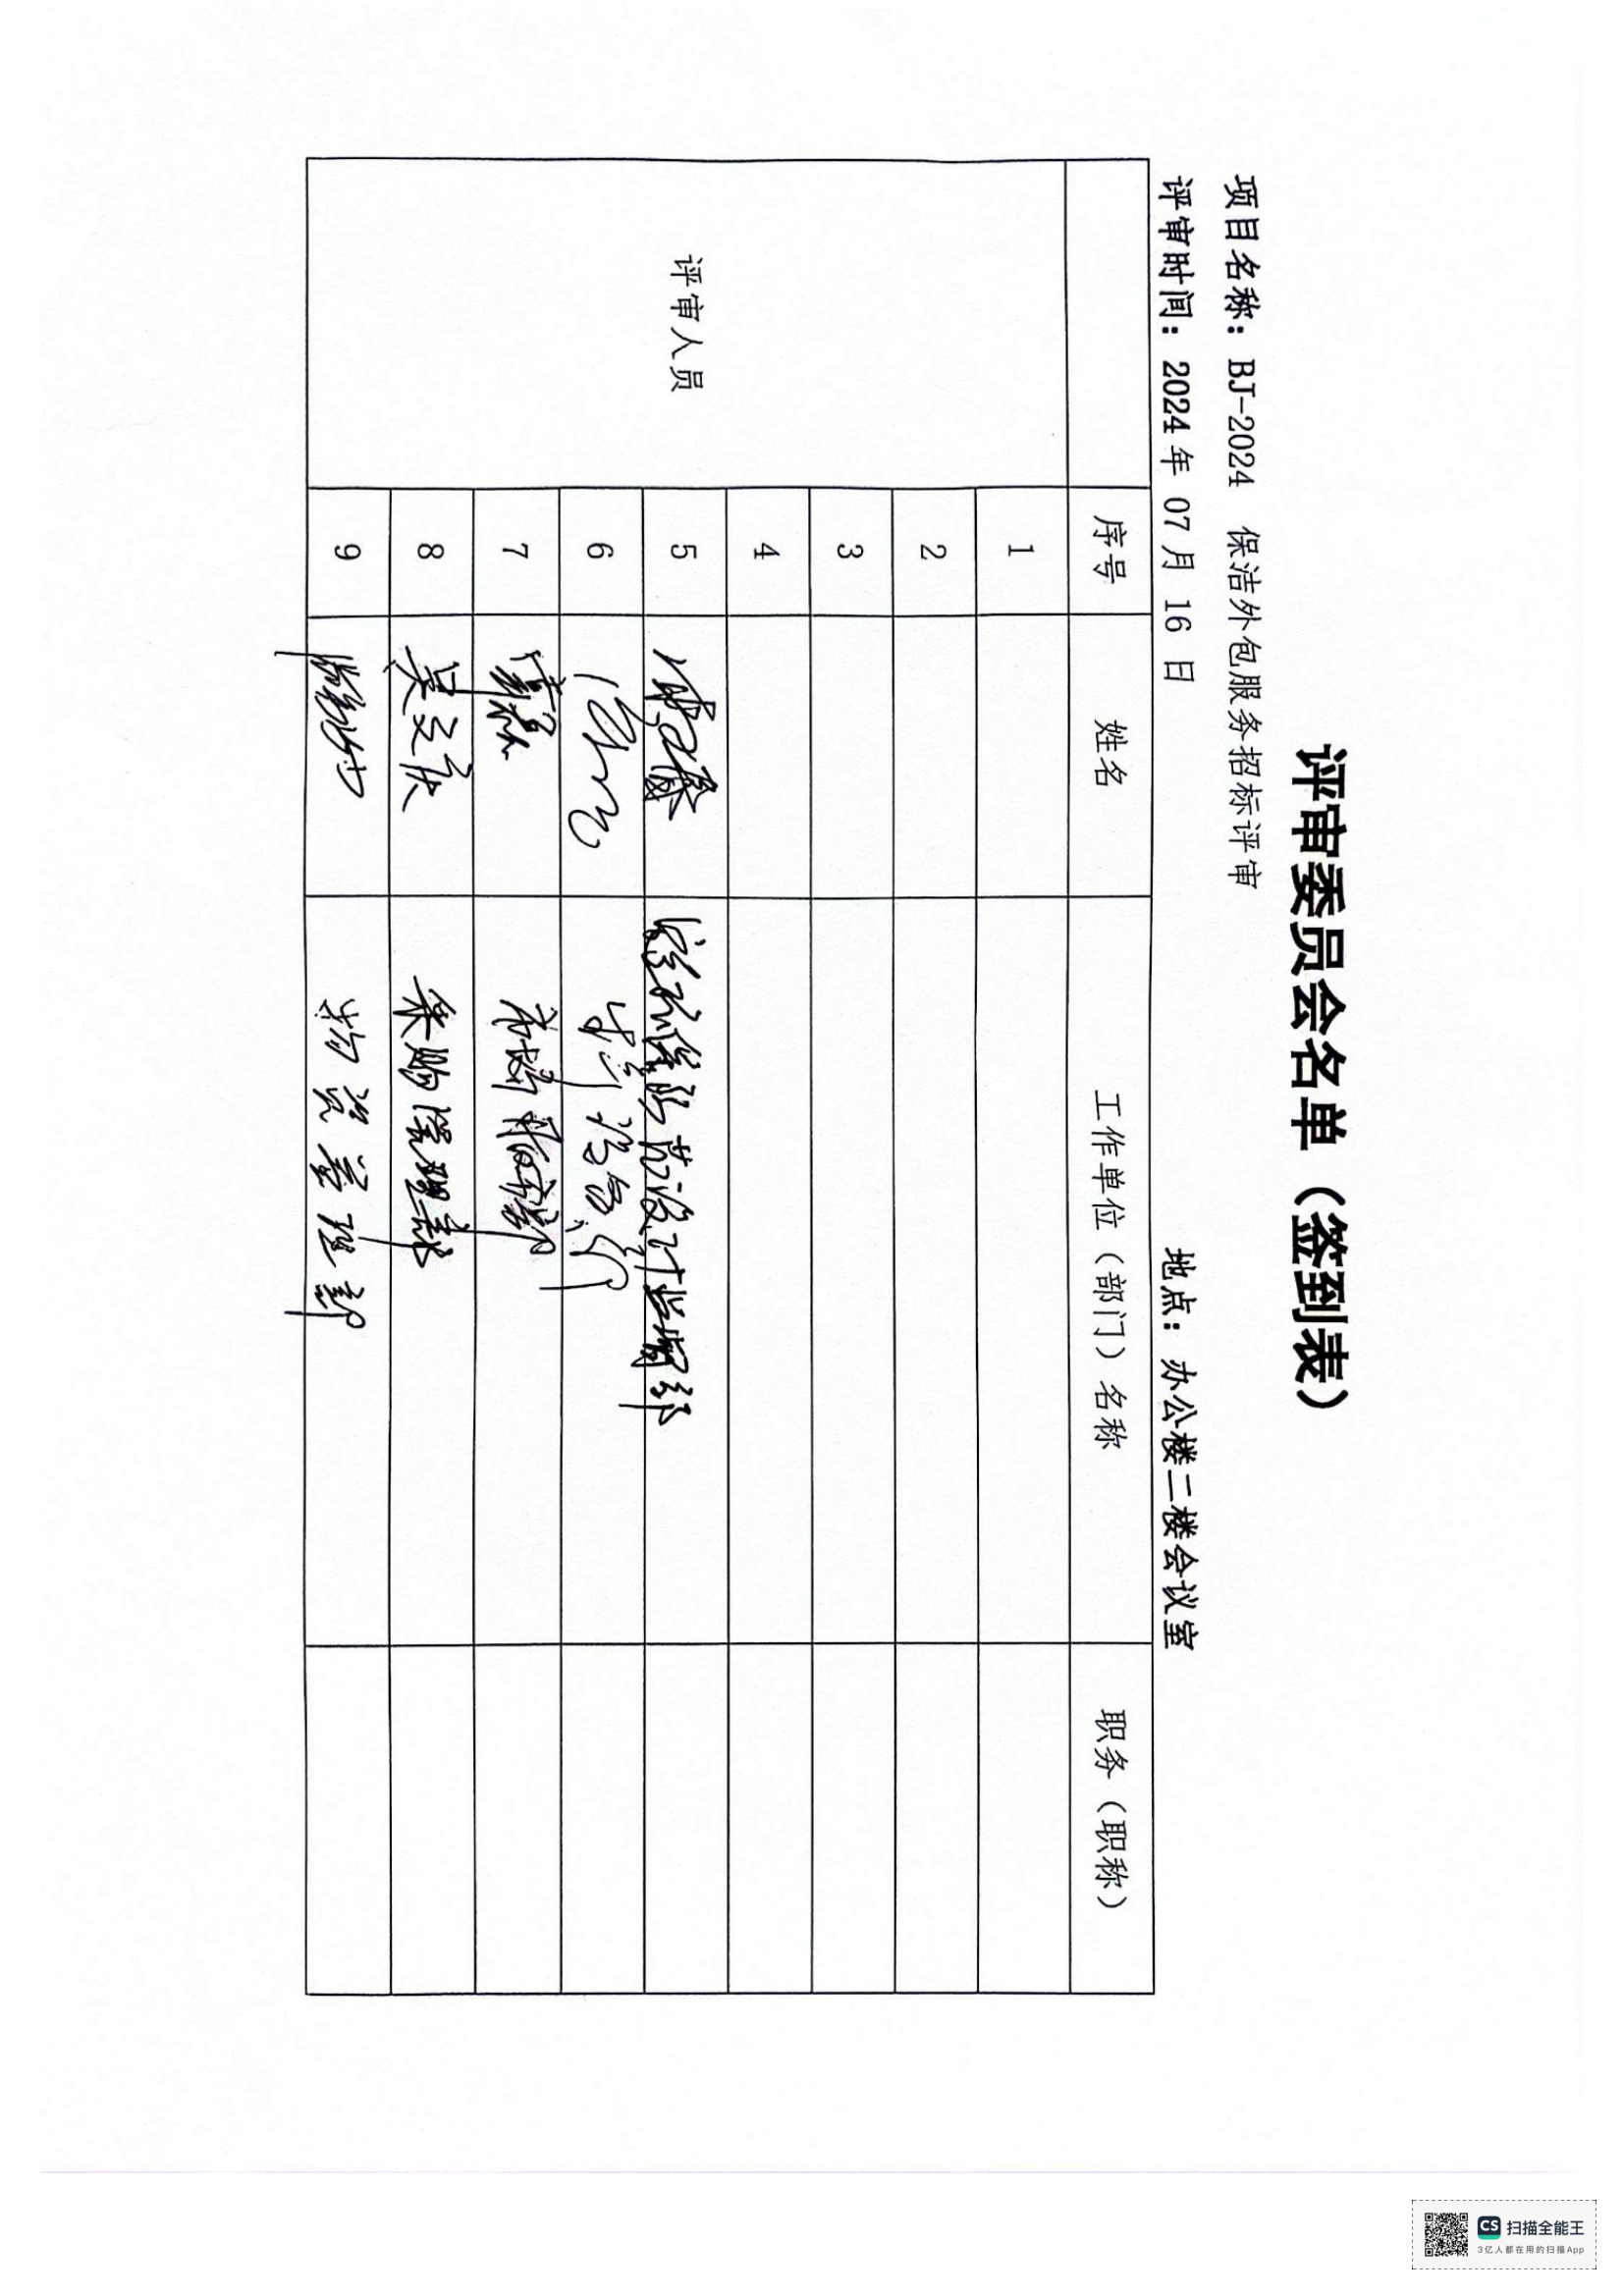 评审委员会名单（签到表）
项目名称：BJ-2024 保洁外包服务招标评审
评审时间：2024年 07月 16日 地点：办公楼二楼会议室
序号 姓名 工作单位（部门）名称 职务（职称）
评审人员
1
2
3
4
5
6
7
8 采购管理部
9 物资管理部
CS 扫描全能王
3亿人都在用的扫描App